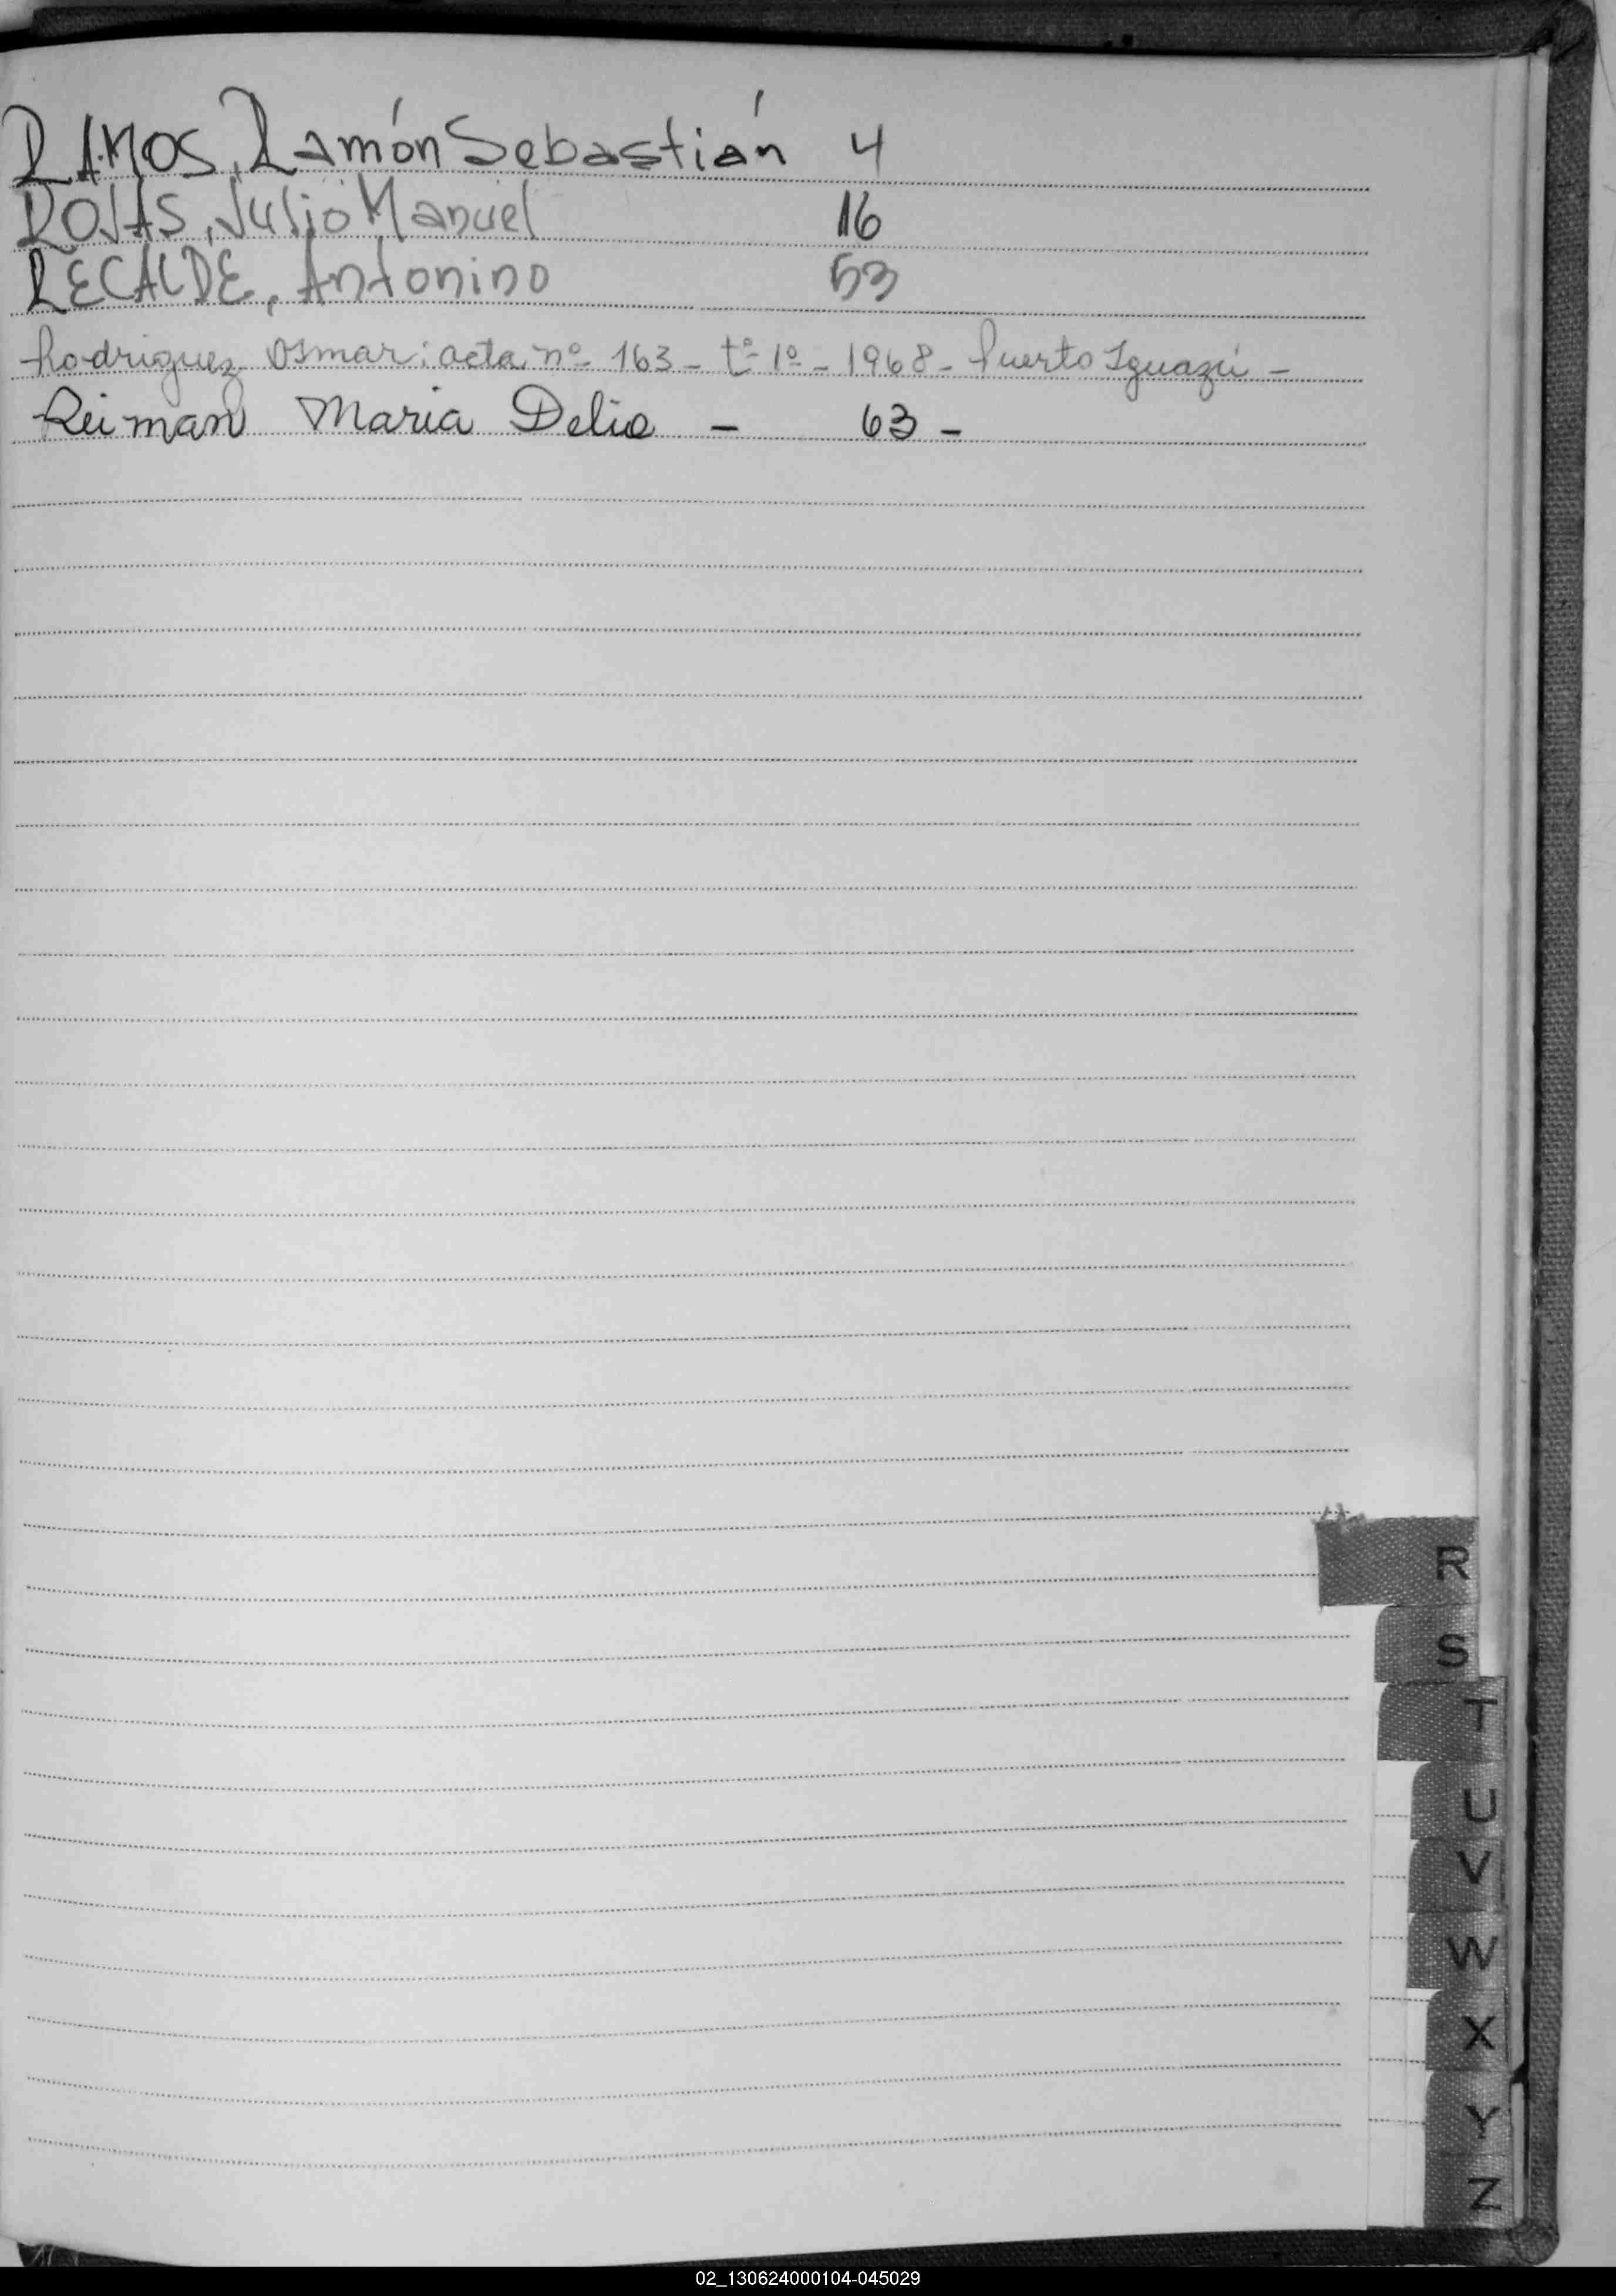 RAMOS, Ramón Sebastián 4
ROJAS, Julio Manuel 16
RECALDE, Antonino 53
Rodriguez Osmar: acta nº 163 - tº 1º - 1968 - Puerto Iguazú -
Reiman Maria Delia - 63 -
R
S
T
U
V
W
X
Y
Z
02_130624000104-045029